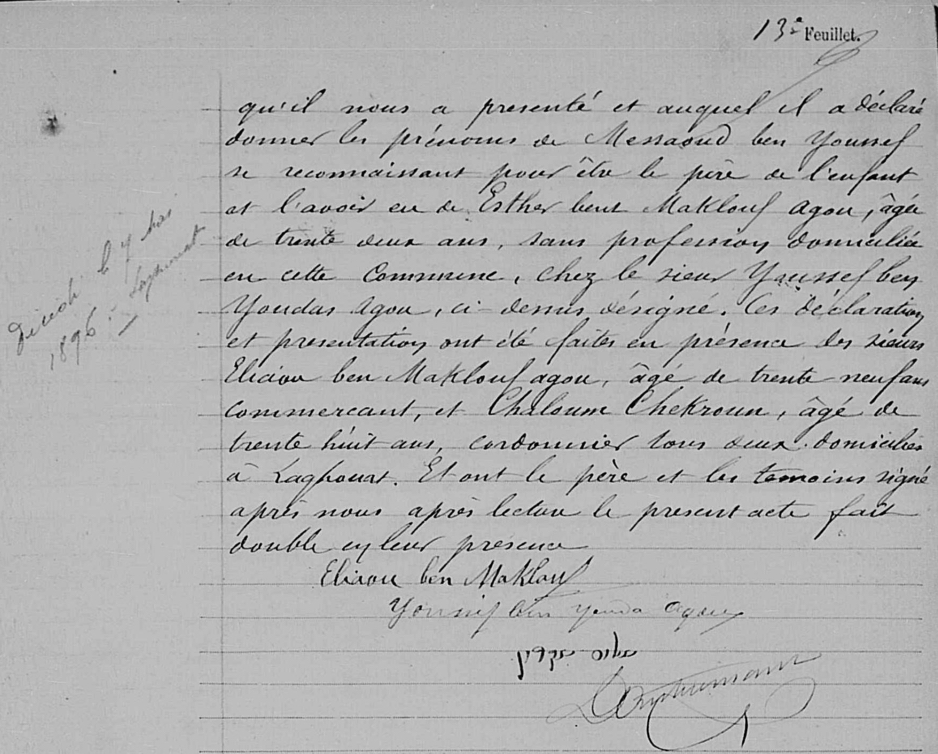 13e Feuillet.
qu'il nous a presenté et auquel il a déclaré
donner les prénoms de Messaoud ben Youssef
se reconnaissant pour être le père de l'enfant
et l'avoir eu de Esther bent Maklouf Agou, âgée
de trente deux ans, sans profession domiciliée
en cette Commune, chez le sieur Youssef ben
Youdas Agou, ci-dessus désigné. Ces déclaration
et presentation ont été faites en présence des sieurs
Eliaou ben Maklouf agou, âgé de trente neuf ans
commercant, et Chaloum Chekroun, âgé de
trente huit ans, cordonnier tous deux domiciliés
à Laghouat. Et ont le père et les temoins signé
après nous après lecture le present acte fait
double en leur présence
Décédé le 7 Mai
1896 à Laghouat
Eliaou ben Maklouf
Youssef ben Youda Agou